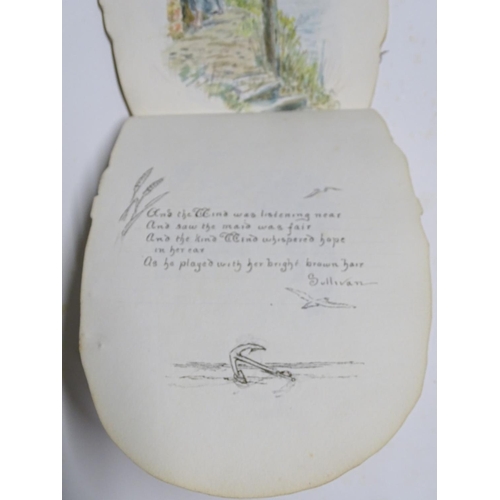 And the Wind was listening near
And saw the maid was fair
And the kind Wind whispered hope
in her ear
As he played with her bright, brown hair
Sullivan